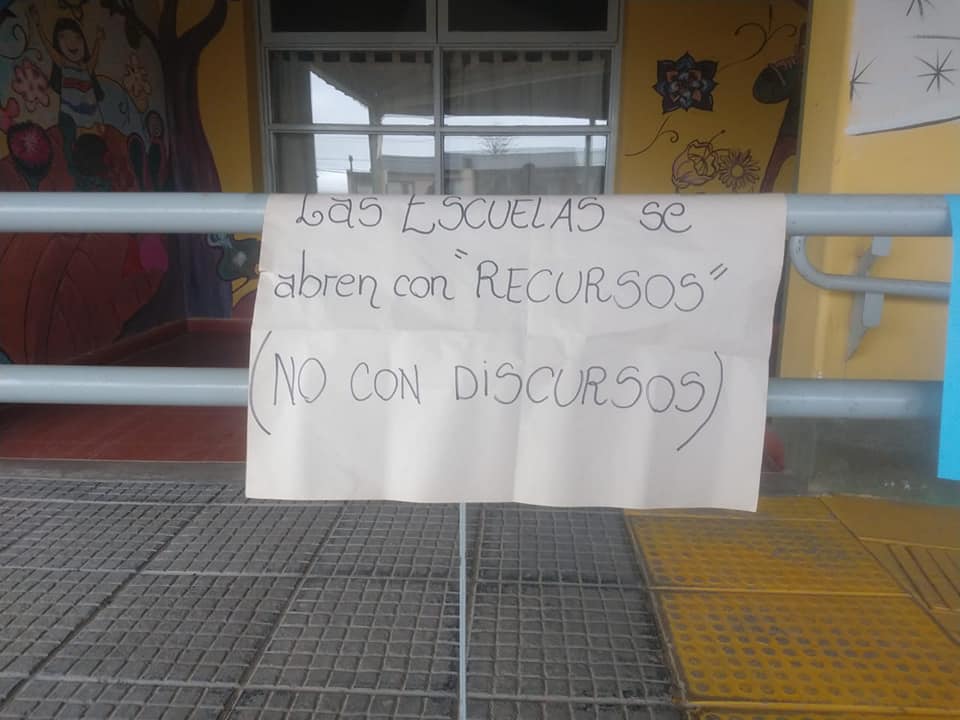 Las ESCUELAS se
abren con "RECURSOS"
(NO CON DISCURSOS)